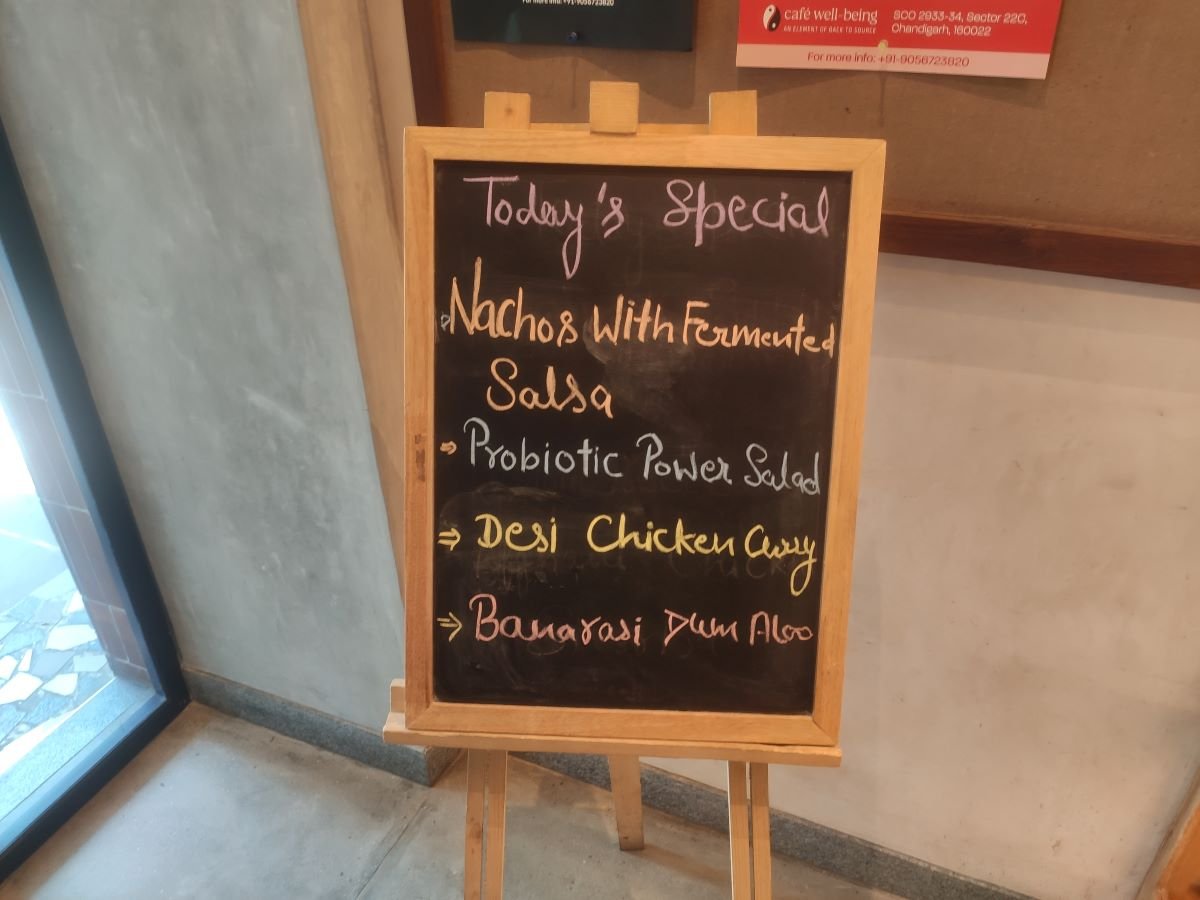 For more info: +91-9056723820
café well-being
AN ELEMENT OF BACK TO SOURCE
SCO 2933-34, Sector 22C,
Chandigarh, 160022
For more info: +91-9056723820
Today's Special
Nachos With Fermented
Salsa
⇒ Probiotic Power Salad
⇒ Desi Chicken Curry
⇒ Banarasi Dum Aloo